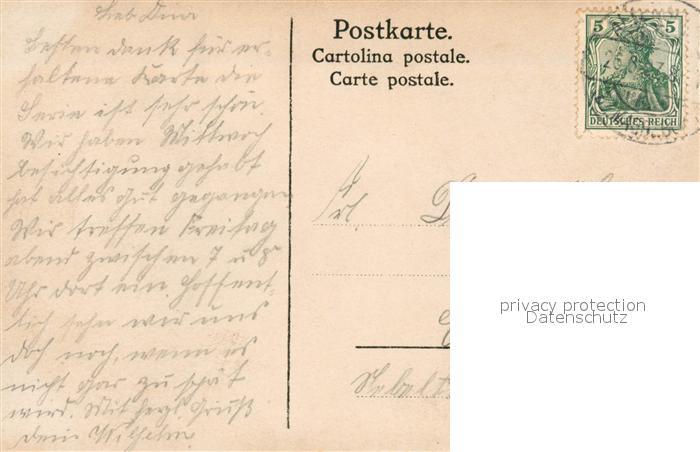 Lieb Dina
Besten dank für er-
haltene Karte die
Serie ist sehr schön.
Wir haben Mittwoch
besichtigung gehabt
hat alles gut gegangen
Wir treffen Freitag
abend zwischen 7 u 8
Uhr dort ein. Hoffent-
lich sehn wir uns
doch noch, wenn es
nicht gar zu spät
wird. Mit herzl. Gruß
dein Wilhelm
Postkarte.
Cartolina postale.
Carte postale.
5 5
DEUTSCHES REICH
Frl.
privacy protection
Datenschutz